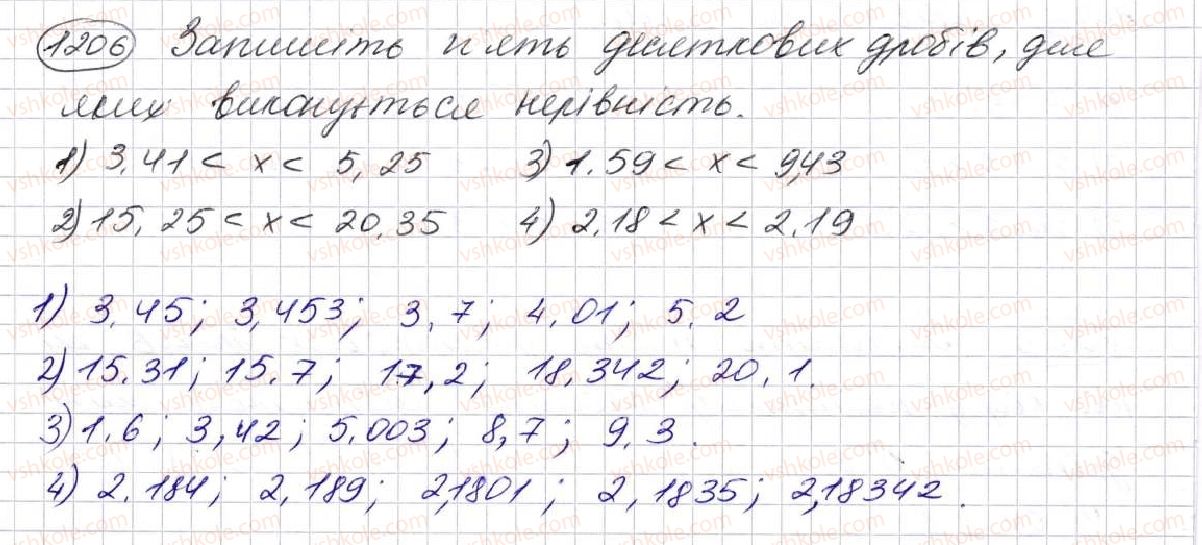 1206 Запишіть п'ять десяткових дробів, для
яких виконується нерівність.
1) 3,41 < x < 5,25 3) 1,59 < x < 9,43
2) 15,25 < x < 20,35 4) 2,18 < x < 2,19
1) 3,45; 3,453; 3,7; 4,01; 5,2
2) 15,31; 15,7; 17,2; 18,342; 20,1.
3) 1,6; 3,42; 5,003; 8,7; 9,3.
4) 2,184; 2,189; 2,1801; 2,1835; 2,18342.